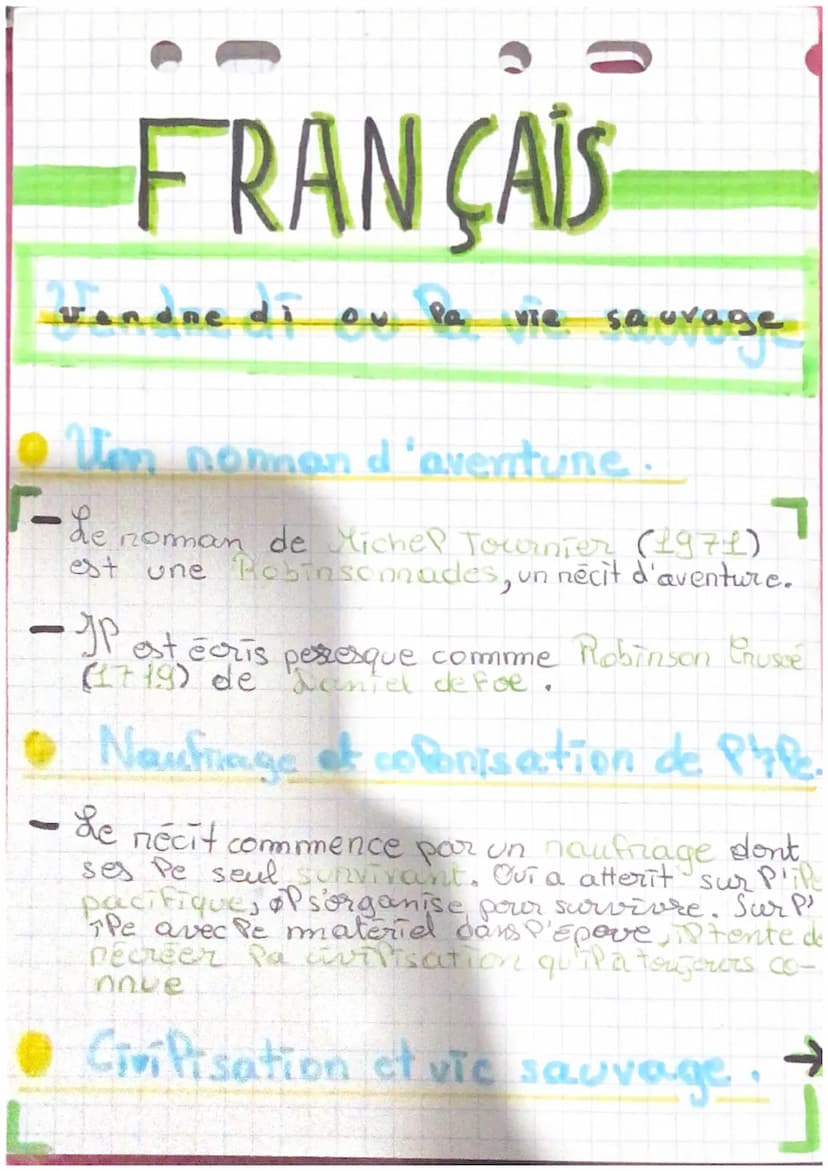 FRANÇAIS
Vendredi ou la vie sauvage
Un roman d'aventure.
- Le roman de Michel Tournier (1971)
est une Robinsonnades, un récit d'aventure.
- Il est écris peresque commme Robinson Crusoé
(1719) de Daniel defoe.
Naufrage et colonisation de l'île.
- Le récit commmence par un naufrage dont
ses le seul survivant. Qui a atterit sur l'île
pacifique, il s'organise pour survivre. Sur l'
île avec le matériel dans l'Épave, il tente de
récréer la civilisation qu'il a toujours co-
nnue
Civilisation et vie sauvage. →